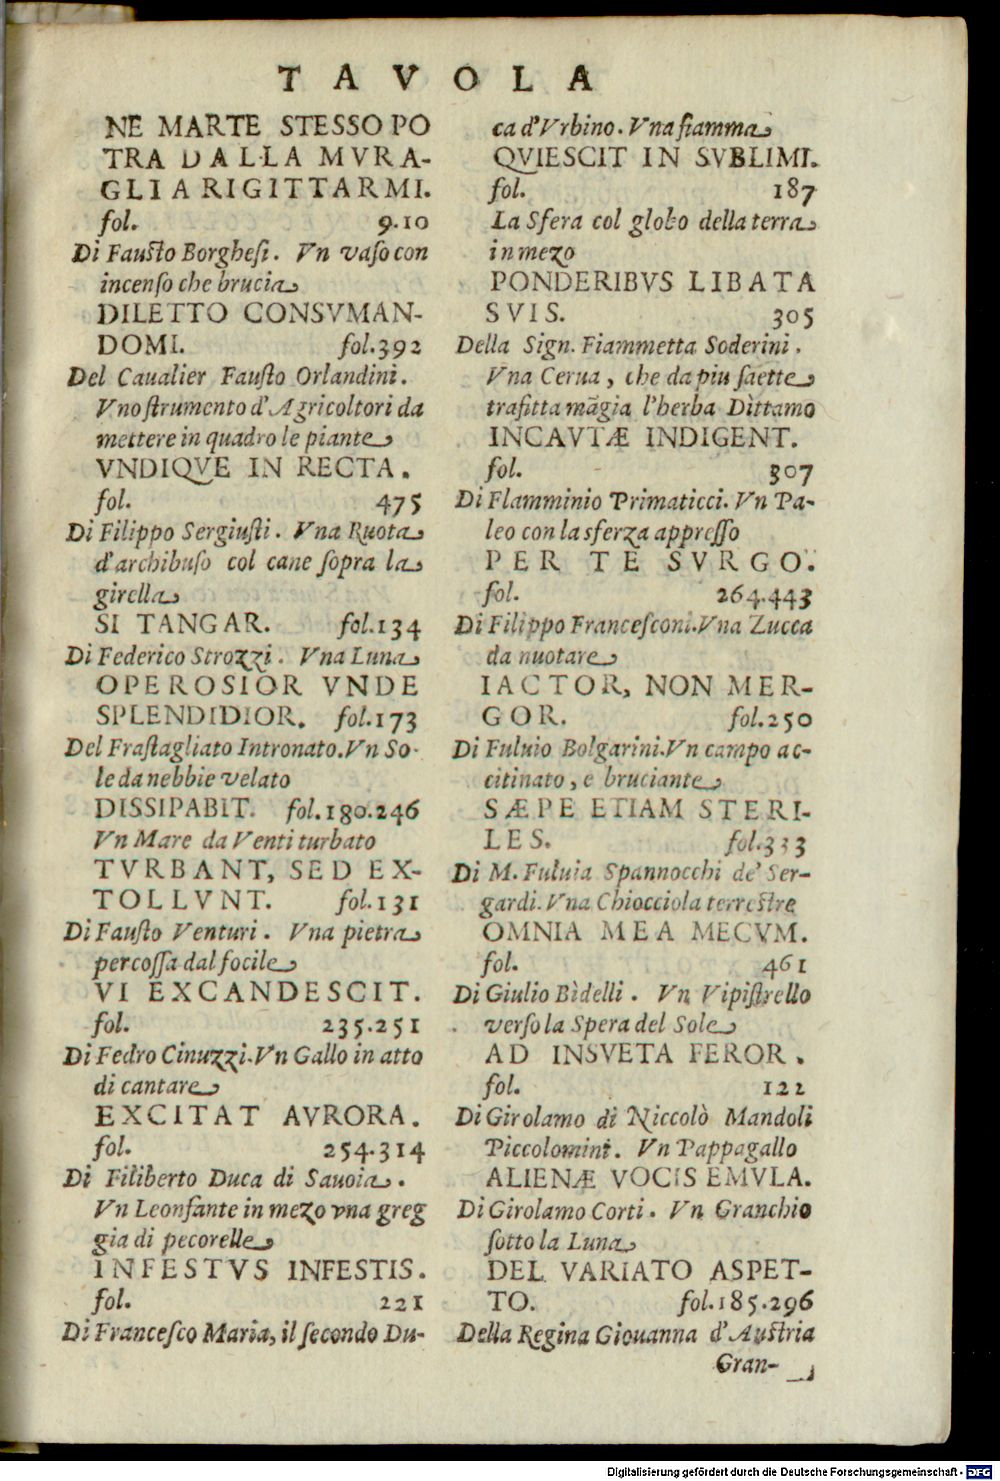 TAVOLA
NE MARTE STESSO PO
TRA DALLA MVRA-
GLIA RIGITTARMI.
fol. 9.10
Di Fausto Borghesi. Vn vaso con
incenso che brucia
DILETTO CONSVMAN-
DOMI. fol.392
Del Caualier Fausto Orlandini.
Vno strumento d'Agricoltori da
mettere in quadro le piante
VNDIQVE IN RECTA.
fol. 475
Di Filippo Sergiusti. Vna Ruota
d'archibuso col cane sopra la
girella
SI TANGAR. fol.134
Di Federico Strozzi. Vna Luna
OPEROSIOR VNDE
SPLENDIDIOR. fol.173
Del Frastagliato Intronato. Vn So-
le da nebbie velato
DISSIPABIT. fol.180.246
Vn Mare da Venti turbato
TVRBANT, SED EX-
TOLLVNT. fol.131
Di Fausto Venturi. Vna pietra
percossa dal focile
VI EXCANDESCIT.
fol. 235.251
Di Fedro Cinuzzi. Vn Gallo in atto
di cantare
EXCITAT AVRORA.
fol. 254.314
Di Filiberto Duca di Sauoia.
Vn Leonfante in mezo vna greg
gia di pecorelle
INFESTVS INFESTIS.
fol. 221
Di Francesco Maria, il secondo Du-
ca d'Vrbino. Vna fiamma
QVIESCIT IN SVBLIMI.
fol. 187
La Sfera col globo della terra
in mezo
PONDERIBVS LIBATA
SVIS. 305
Della Sign. Fiammetta Soderini.
Vna Cerua, che da piu saette
trafitta mãgia l'herba Dìttamo
INCAVTÆ INDIGENT.
fol. 307
Di Flamminio Primaticci. Vn Pa-
leo con la sferza appresso
PER TE SVRGO.
fol. 264.443
Di Filippo Francesconi. Vna Zucca
da nuotare
IACTOR, NON MER-
GOR. fol.250
Di Fuluio Bolgarini. Vn campo ac-
citinato, e bruciante
SÆPE ETIAM STERI-
LES. fol.333
Di M. Fuluia Spannocchi de' Ser-
gardi. Vna Chiocciola terrestre
OMNIA MEA MECVM.
fol. 461
Di Giulio Bìdelli. Vn Vipistrello
verso la Spera del Sole
AD INSVETA FEROR.
fol. 122
Di Girolamo di Niccolò Mandoli
Piccolomini. Vn Pappagallo
ALIENÆ VOCIS EMVLA.
Di Girolamo Corti. Vn Granchio
sotto la Luna
DEL VARIATO ASPET-
TO. fol.185.296
Della Regina Giouanna d'Austria
Gran-
Digitalisierung gefördert durch die Deutsche Forschungsgemeinschaft - DFG